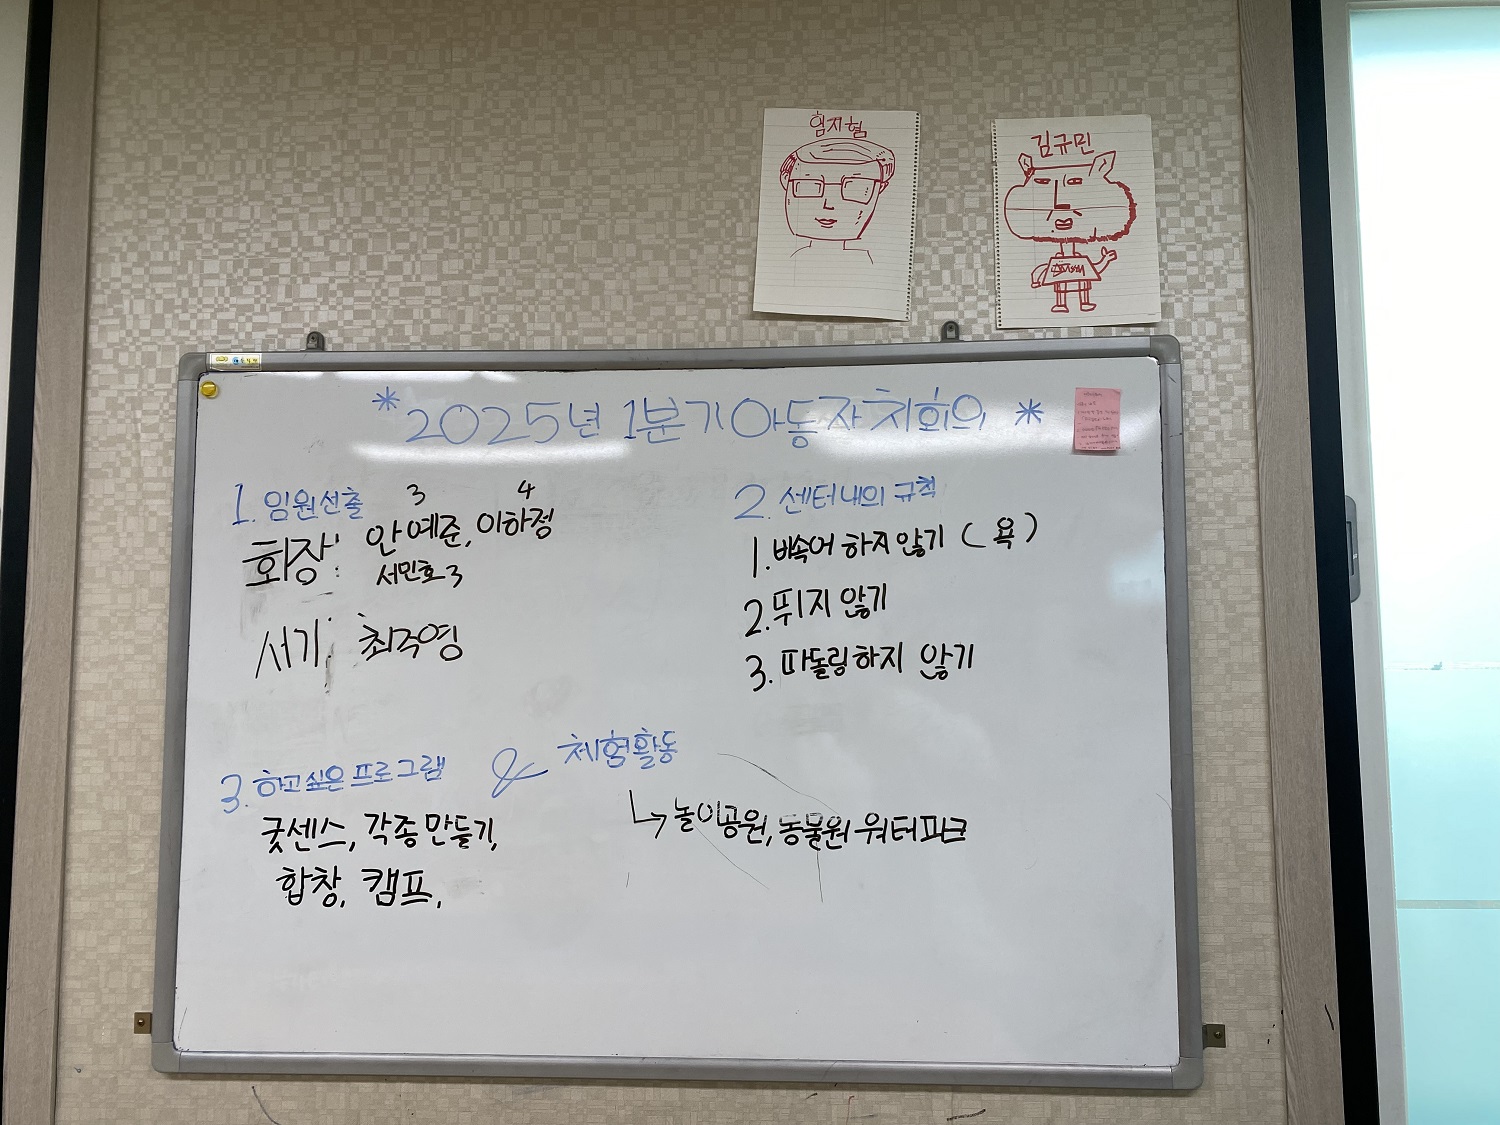 김규민
*2025년 1분기 아동자치회의*
1. 임원선출
3 4
회장: 안예준, 이하정
서민호 3
서기: 최주영
2. 센터내의 규칙
1. 비속어 하지 않기 (욕)
2. 뛰지 않기
3. 따돌림하지 않기
3. 하고싶은 프로그램 & 체험활동
굿센스, 각종 만들기,
합창, 캠프,
↳ 놀이공원, 동물원 워터파크